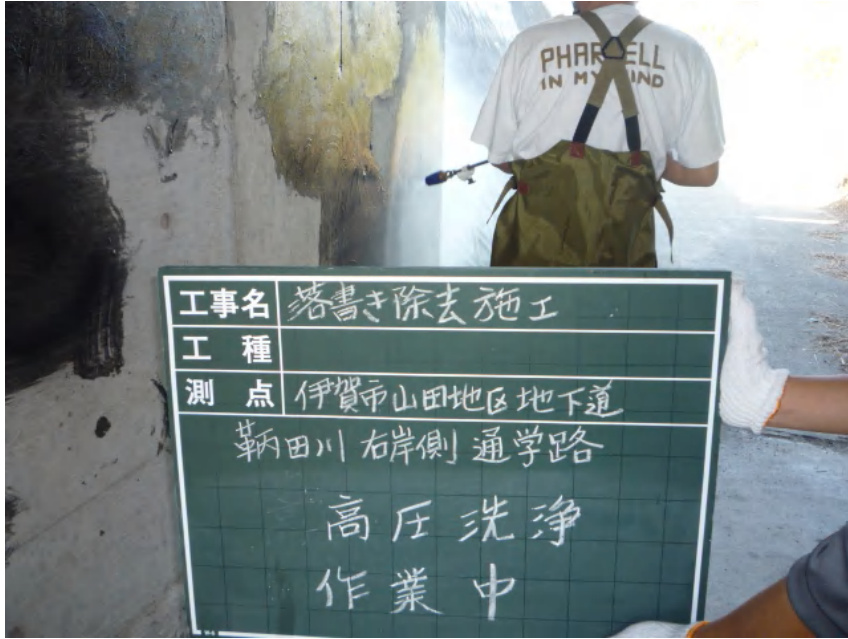 PHAR ELL
IN MY MIND
工事名 落書き除去施工
工種
測点 伊賀市山田地区地下道
鞆田川 右岸側 通学路
高圧洗浄
作業中